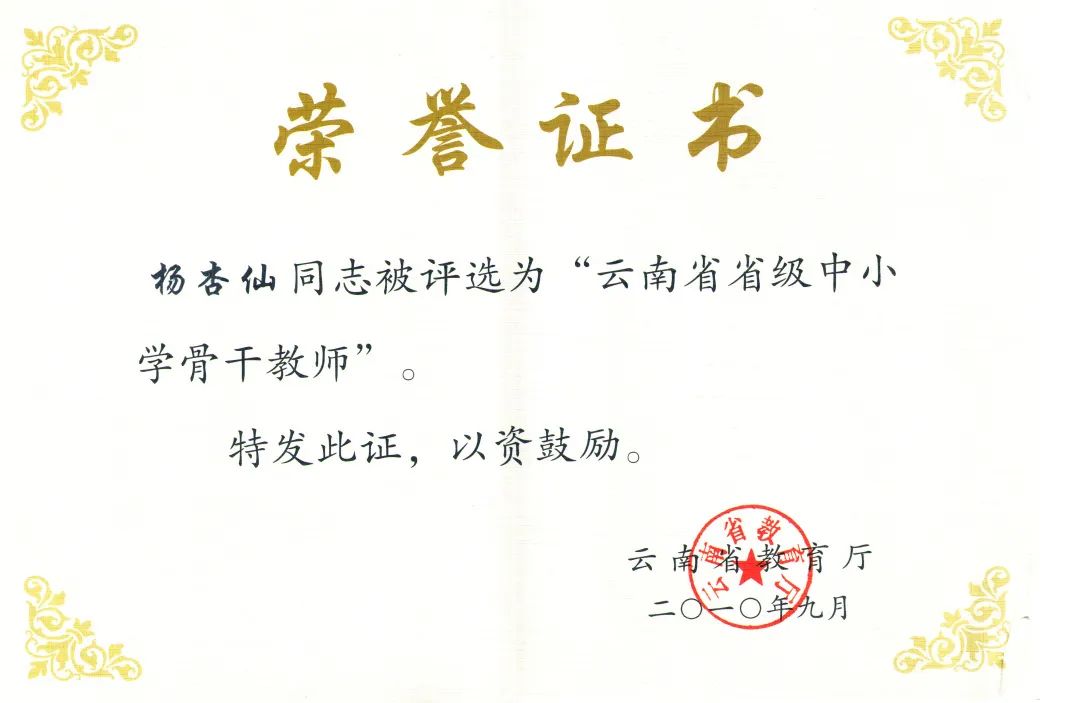 荣誉证书
杨杏仙同志被评选为“云南省省级中小
学骨干教师”。
特发此证，以资鼓励。
云南省教育厅
二〇一〇年九月
云南省教育厅